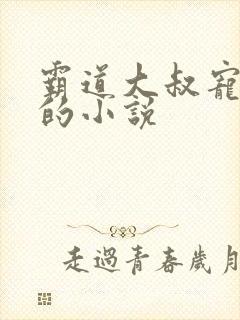 霸道大叔寵
的小說
走過青春歲月